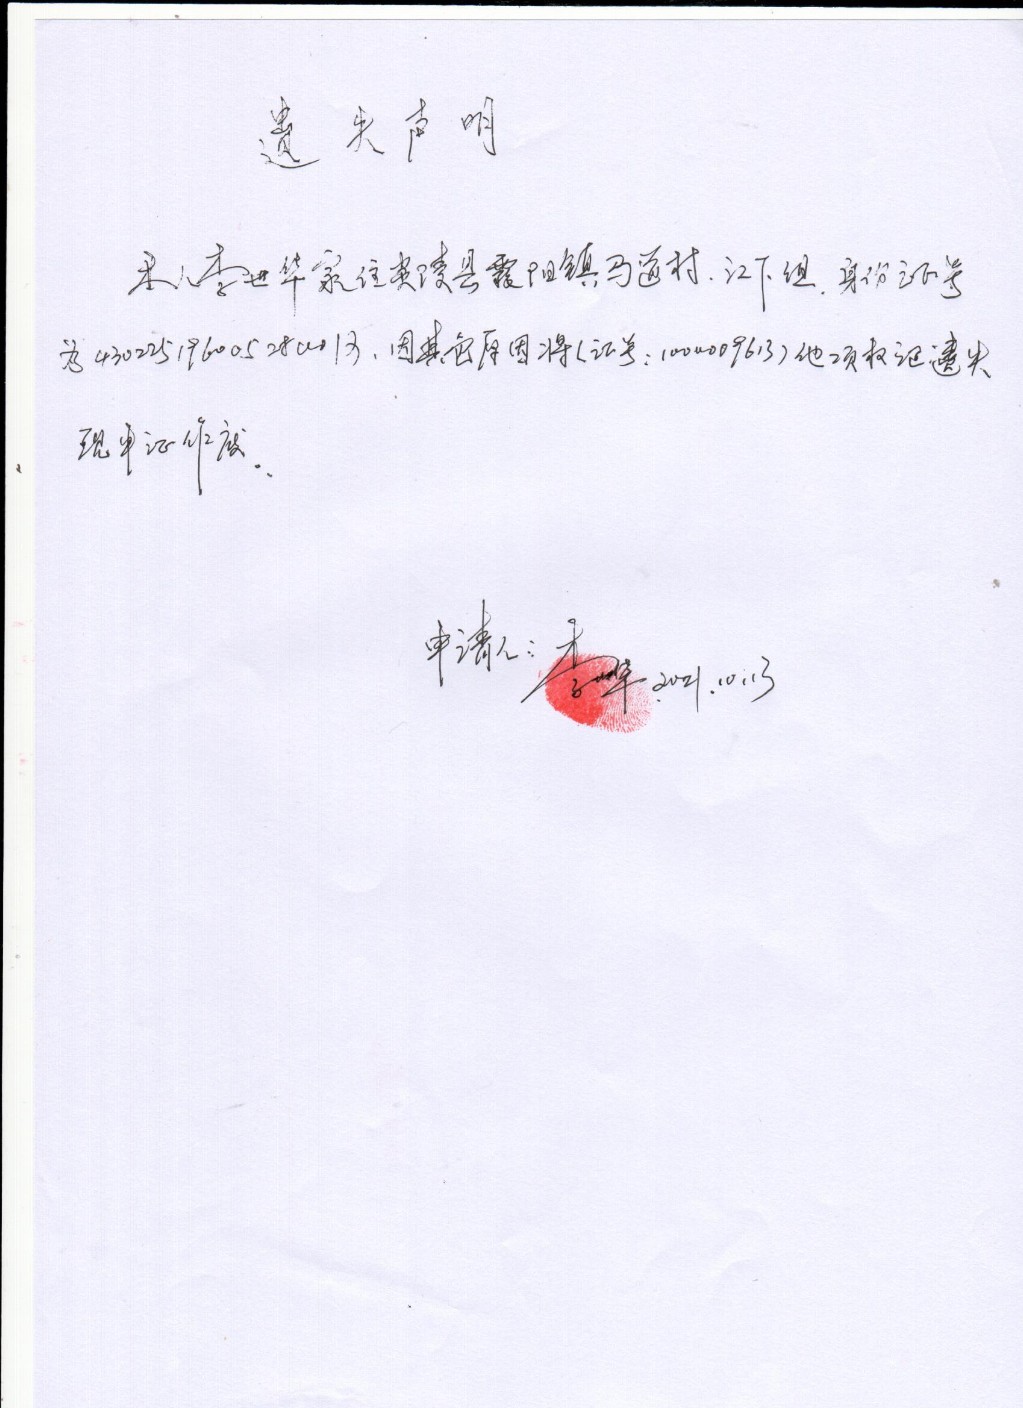 遗失声明
本人李世华家住炎陵县霞阳镇马道村、江下组、身份证号
为430225196005280013、因其它原因将(证号:100009613)他项权证遗失
现申证作废。
申请人:李世华 2021.10.13